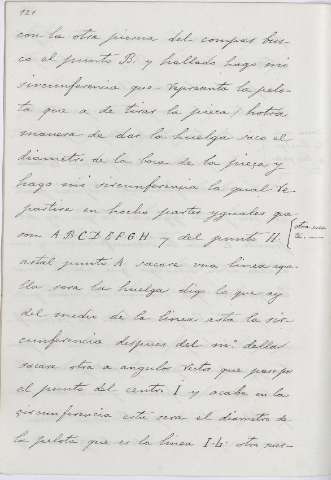 121
con la otra pierna del compas bus-
co el punto B. y hallado hago mi
circunferencia que representa la pelo-
ta que a de tirar la pieça / hotra
manera de dar la huelga saco el
diametro de la boca de la pieça y
hago mi circunferencia la qual re-
partire en hocho partes yguales que
son A B C D E F G H y del punto H.
astal punto A sacare vna linea aque-
lla sera la huelga digo lo que ay
del medio de la linea asta la cir-
cunferencia despues del mº della
sacare otra a angulos rectos que pase por
el punto del centro I y acabe en la
circunferencia esta sera el diametro de
la pelota que es la linea I-L. otra